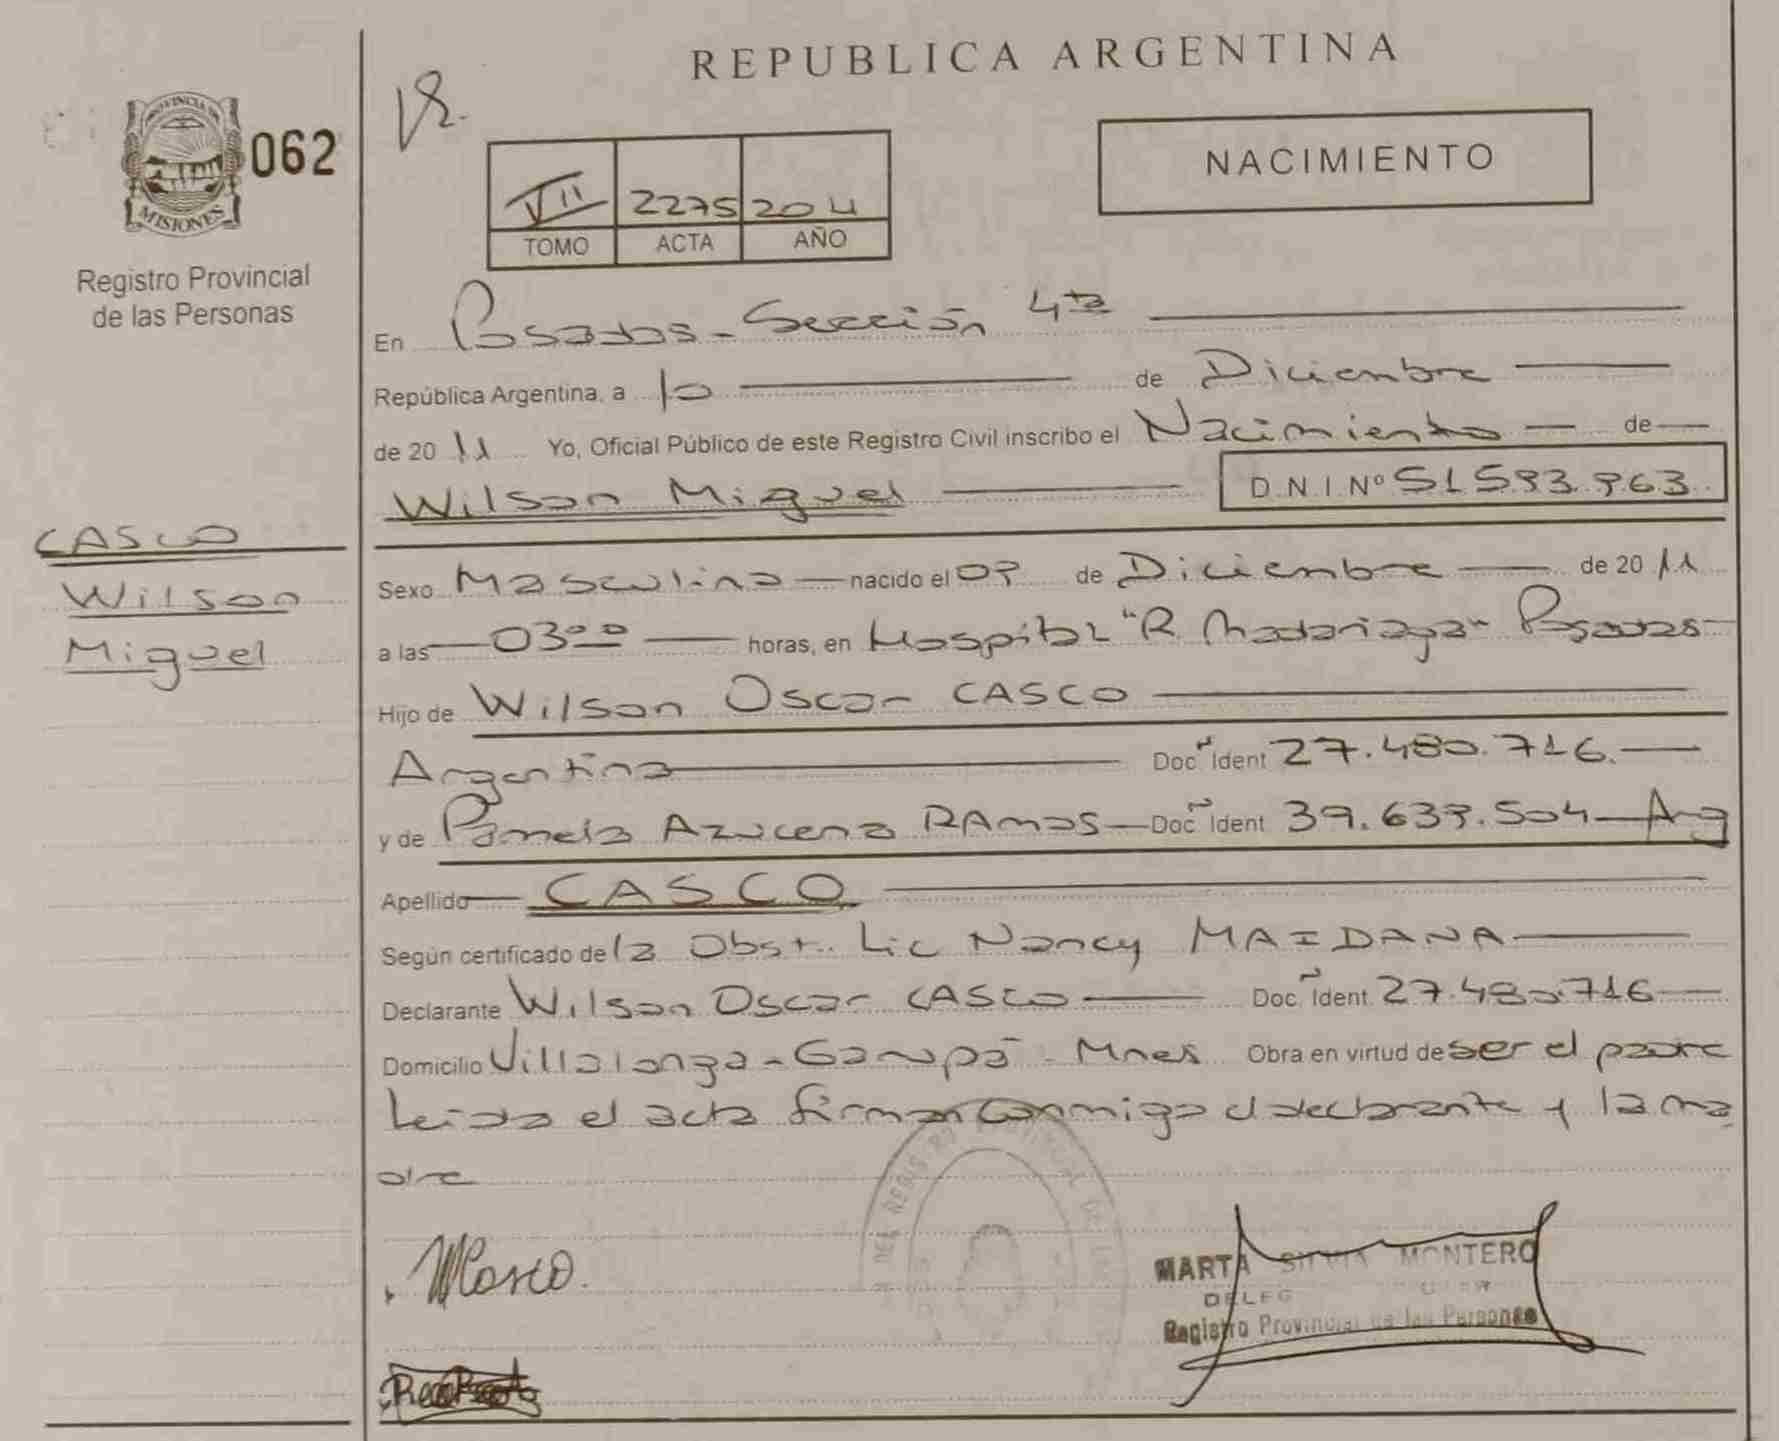 REPUBLICA ARGENTINA
PROVINCIA DE
MISIONES
062
Registro Provincial
de las Personas
NACIMIENTO
VII 2275 2011
TOMO ACTA AÑO
En Posadas - Sección 4ta
República Argentina, a 10 de Diciembre
de 20 11 Yo, Oficial Público de este Registro Civil inscribo el Nacimiento de
Wilson Miguel D.N.I. Nº 51.593.963
CASCO
Wilson
Miguel
Sexo Masculino nacido el 09 de Diciembre de 20 11
a las 03:00 horas, en Hospital "R. Madariaga" Posadas
Hijo de Wilson Oscar CASCO
Argentino Doc. Ident. 27.480.716.
y de Pamela Azucena RAMOS Doc. Ident. 39.639.504 Arg
Apellido CASCO
Según certificado de la Obst. Lic Nancy MAIDANA
Declarante Wilson Oscar CASCO Doc. Ident. 27.480.716
Domicilio Villalonga - Garupá - Mnes Obra en virtud de ser el padre
Leida el acta firman conmigo el declarante y la ma
dre
MARTA SILVIA MONTERO
Registro Provincial de las Personas